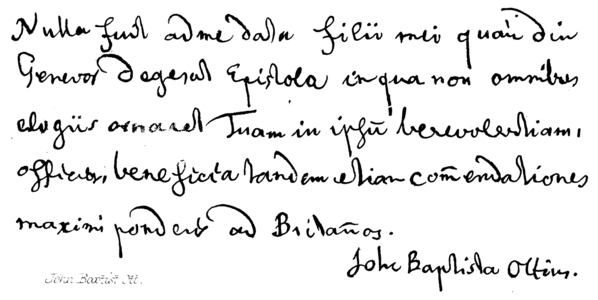 Nulla fuit ad me data filii mei quam diu
Genevæ degerat Epistola in qua non omnibus
elogiis ornaret Tuam in ipsũ benevolentiam,
officia, beneficia tandem etiam com̃endationes
maximi ponderis ad Britan̄os.
Joh: Baptista Ottius.
John Baptist Ott.